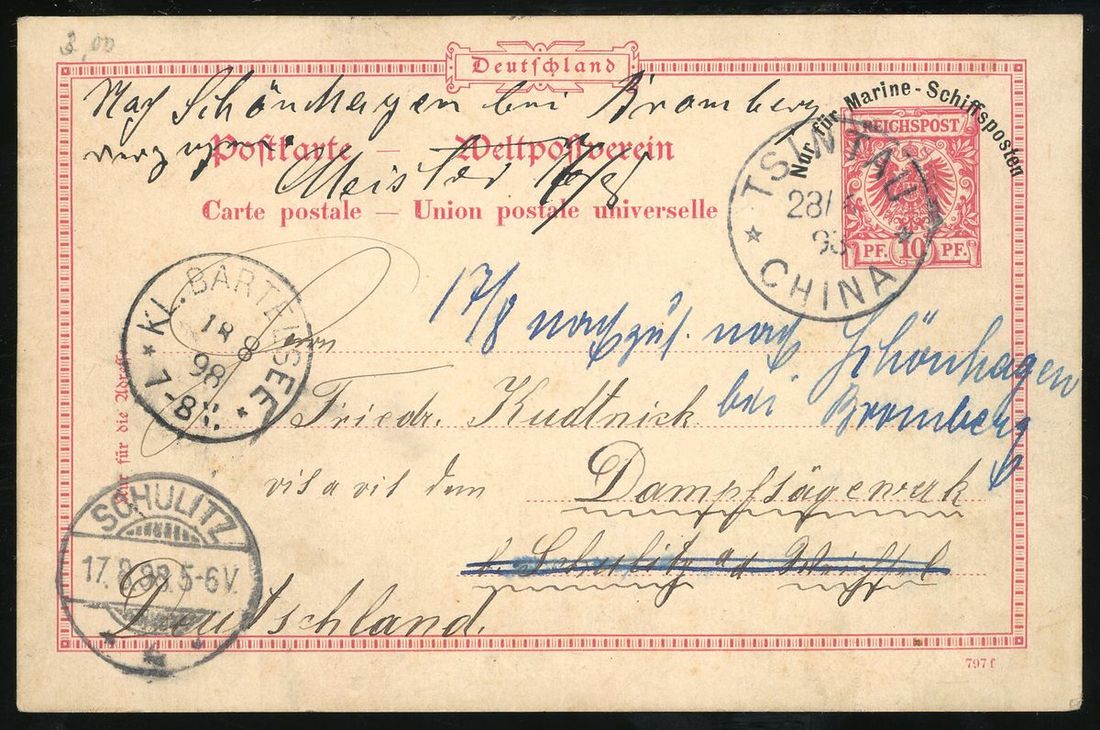 3,00
Deutschland
Nach Schönhagen bei Bromberg
verzogen
Meister 16/8
Postkarte — Weltpostverein
Carte postale — Union postale universelle
Nur für Marine-Schiffsposten
REICHSPOST
PF. 10 PF.
TSINTAU
28/
98
CHINA
KL. BARTELSEE
18 8
98
7-8V.
17/8 nachzus. nach Schönhagen
bei Bromberg
Herrn
Friedr. Kudtnick
vis a vis dem Dampfsägewerk
b. Schulitz a/d Weichsel
Deutschland.
SCHULITZ
17.8.98.5-6V.
Nur für die Adresse
797f